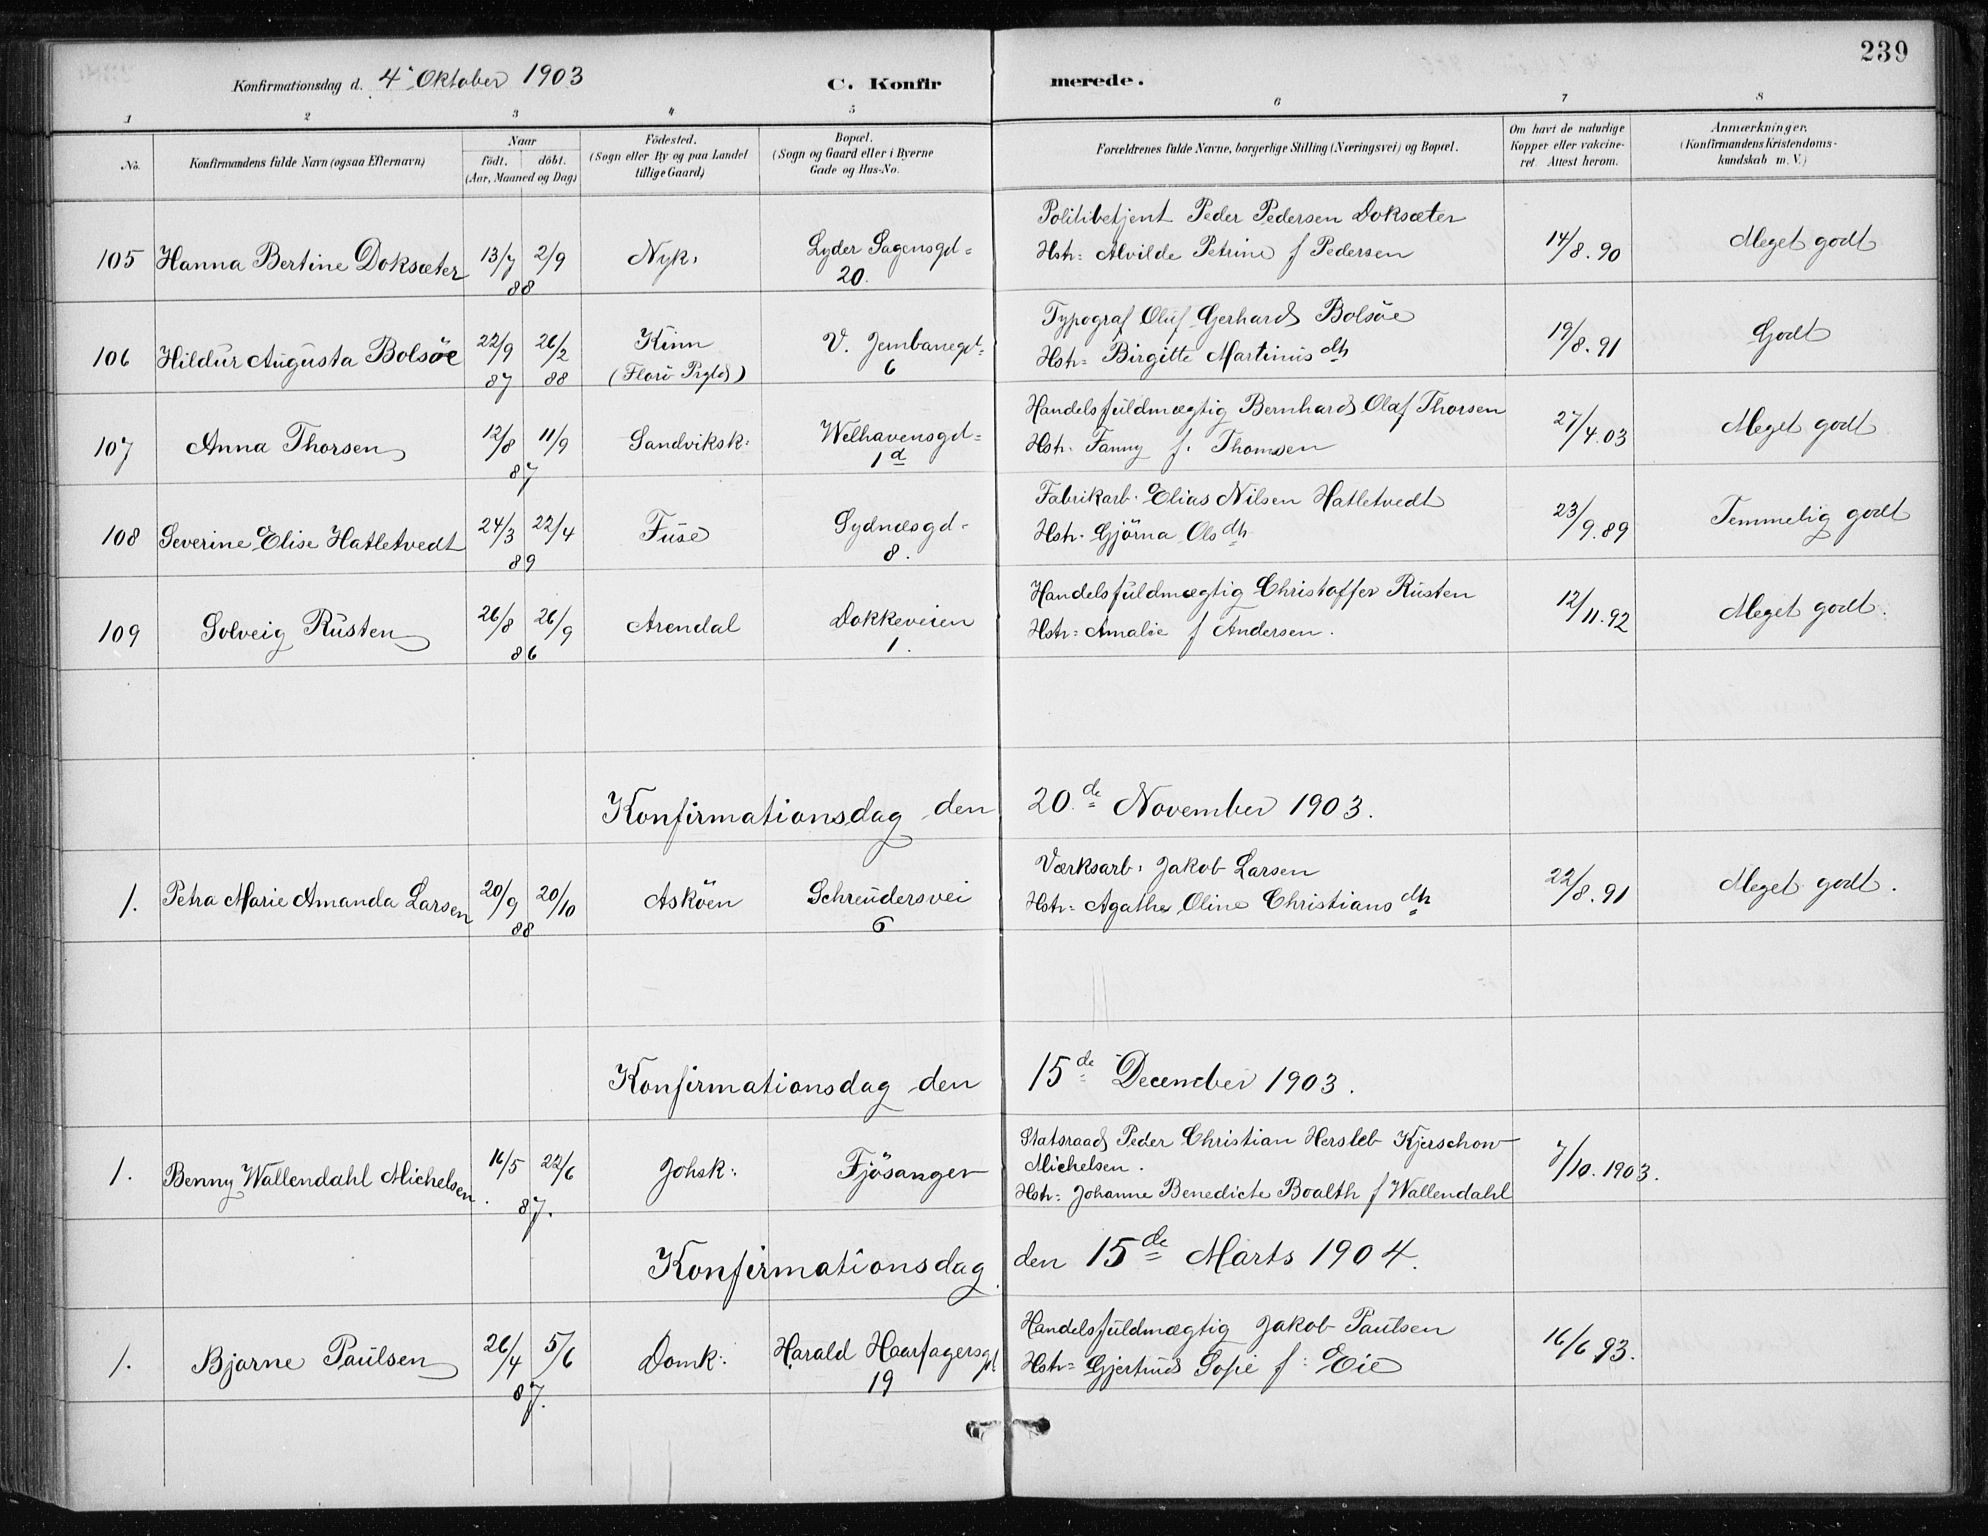 239
Konfirmationsdag d. 4' Oktober 1903 C. Konfirmerede.
1 2 3 4 5 6 7 8
No. Konfirmandens fulde Navn (ogsaa Efternavn) Naar födt. döbt. (Aar, Maaned og Dag) Födested. (Sogn eller By og paa Landet tillige Gaard) Bopæl. (Sogn og Gaard eller i Byerne Gade og Hus-No. Forældrenes fulde Navne, borgerlige Stilling (Næringsvei) og Bopæl. Om havt de naturlige Kopper eller vakcineret. Attest herom. Anmærkninger. (Konfirmandens Kristendomskundskab m. V.)
105 Hanna Bertine Doksæter 13/7 2/9 88 Nyk: Lyder Sagensgd= 20. Politibetjent Peder Pedersen Doksæter
Hstr: Alvilde Petrine f Pedersen 14/8.90 Meget godt
106 Hildur Augusta Bolsöe 22/9 87 26/2 88 Kinn (Florö Prgld) V. Jernbanegd= 6 Typograf Oluf Gerhard Bolsöe
Hstr= Birgitte Martinusdtr 19/8.91 Godt
107 Anna Thorsen 12/8 11/9 87 Sandviksk: Welhavensgd= 1d Handelsfuldmægtig Bernhard Olaf Thorsen
Hstr. Fanny f. Thomsen 27/4.03 Meget godt
108 Severine Elise Hatletvedt 24/3 22/4 89 Fuse Sydnæsgd- 8. Fabrikarb. Elias Nilsen Hatletvedt
Hstr. Gjörna Olsdtr 23/9.89 Temmelig godt
109 Solveig Rusten 26/8 26/9 86 Arendal Dokkeveien 1. Handelsfuldmægtig Christoffer Rusten
Hstr= Amalie f Andersen. 12/11.92 Meget godt.
Konfirmationsdag den 20.de November 1903.
1. Petra Marie Amanda Larsen 20/9 20/10 88 Asköen Schreudersvei 6 Værksarb: Jakob Larsen
Hstr= Agathe Oline Christiansdtr 22/8.91 Meget godt.
Konfirmationsdag den 15de December 1903.
1. Benny Wallendahl Michelsen. 16/5 22/6 87. Johsk: Fjösanger Statsraad Peder Christian Hersleb Kjerschow
Michelsen.
Hstr: Johanne Benedicte Boalth f Wallendahl 7/10.1903.
Konfirmationsdag den 15de Marts 1904.
1. Bjarne Paulsen 26/4 5/6 87. Domk: Harald Haarfagersgd 19 Handelsfuldmægtig Jakob Paulsen
Hstr= Gjertrud Sofie f: Eie 16/6 93.